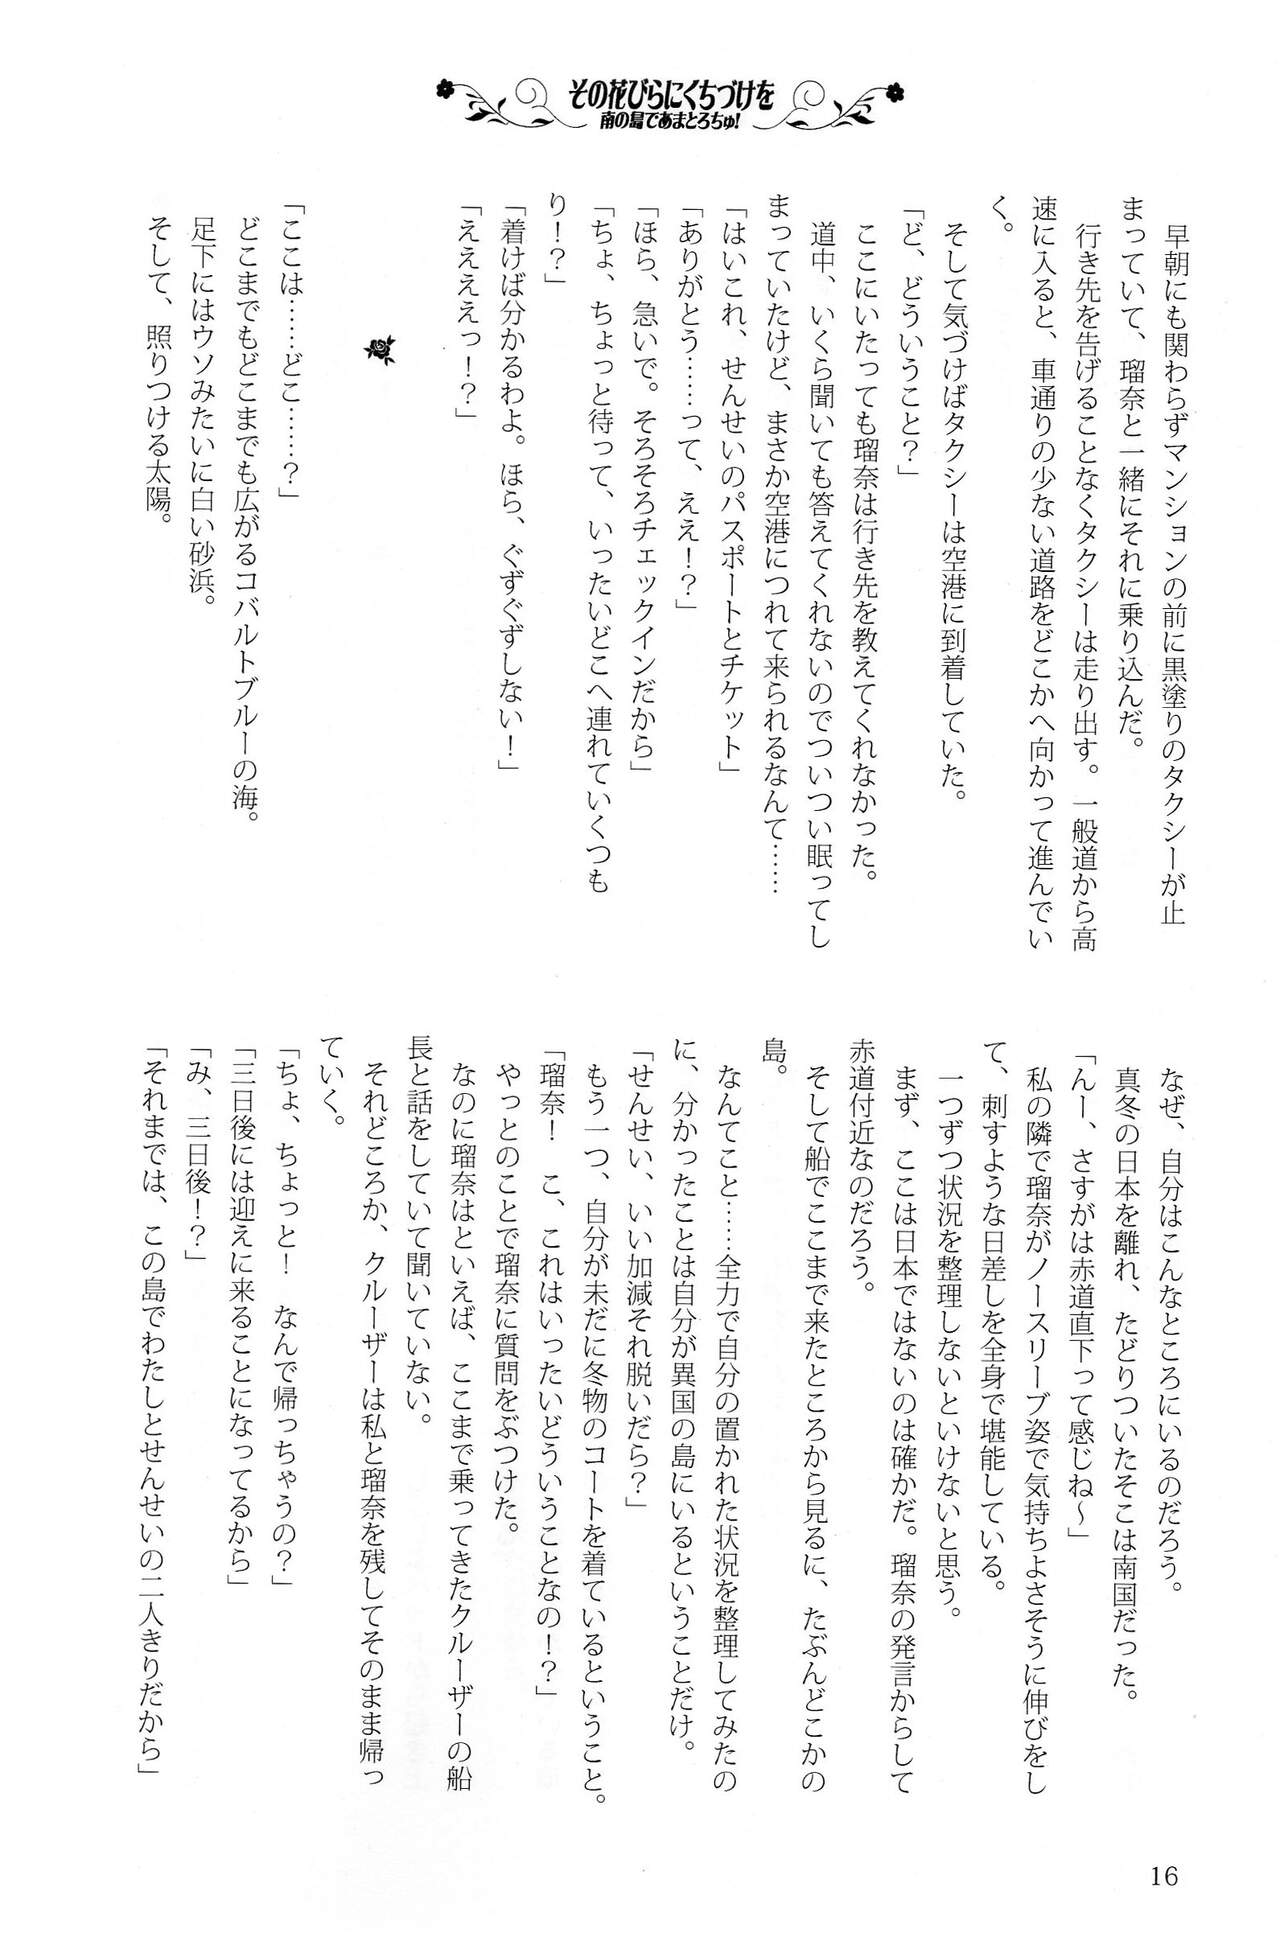 その花びらにくちづけを
南の島であまとろちゅ!
　早朝にも関わらずマンションの前に黒塗りのタクシーが止
まっていて、瑠奈と一緒にそれに乗り込んだ。
　行き先を告げることなくタクシーは走り出す。一般道から高
速に入ると、車通りの少ない道路をどこかへ向かって進んでい
く。
　そして気づけばタクシーは空港に到着していた。
「ど、どういうこと？」
　ここにいたっても瑠奈は行き先を教えてくれなかった。
　道中、いくら聞いても答えてくれないのでついつい眠ってし
まっていたけど、まさか空港につれて来られるなんて……
「はいこれ、せんせいのパスポートとチケット」
「ありがとう……って、ええ！？」
「ほら、急いで。そろそろチェックインだから」
「ちょ、ちょっと待って、いったいどこへ連れていくつも
り！？」
「着けば分かるわよ。ほら、ぐずぐずしない！」
「ええええっ！？」
「ここは……どこ……？」
　どこまでもどこまでも広がるコバルトブルーの海。
　足下にはウソみたいに白い砂浜。
　そして、照りつける太陽。
　なぜ、自分はこんなところにいるのだろう。
　真冬の日本を離れ、たどりついたそこは南国だった。
「んー、さすがは赤道直下って感じね～」
　私の隣で瑠奈がノースリーブ姿で気持ちよさそうに伸びをし
て、刺すような日差しを全身で堪能している。
　一つずつ状況を整理しないといけないと思う。
　まず、ここは日本ではないのは確かだ。瑠奈の発言からして
赤道付近なのだろう。
　そして船でここまで来たところから見るに、たぶんどこかの
島。
　なんてこと……全力で自分の置かれた状況を整理してみたの
に、分かったことは自分が異国の島にいるということだけ。
「せんせい、いい加減それ脱いだら？」
　もう一つ、自分が未だに冬物のコートを着ているということ。
「瑠奈！　こ、これはいったいどういうことなの！？」
　やっとのことで瑠奈に質問をぶつけた。
　なのに瑠奈はといえば、ここまで乗ってきたクルーザーの船
長と話をしていて聞いていない。
　それどころか、クルーザーは私と瑠奈を残してそのまま帰っ
ていく。
「ちょ、ちょっと！　なんで帰っちゃうの？」
「三日後には迎えに来ることになってるから」
「み、三日後！？」
「それまでは、この島でわたしとせんせいの二人きりだから」
16